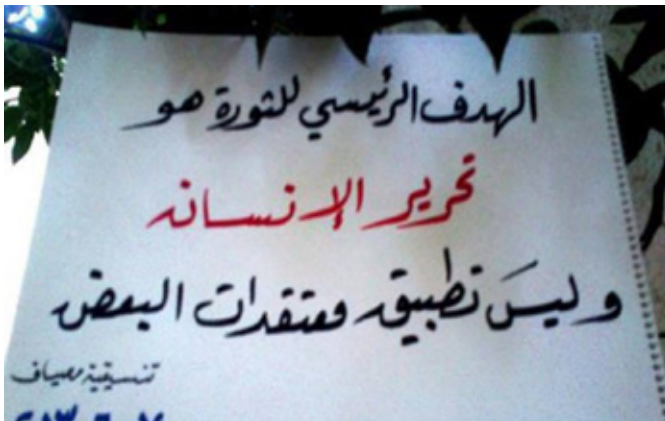 الهدف الرئيسي للثورة هو
تحرير الإنسان
وليسَ تطبيق معتقدات البعض
تنسيقية مصياف